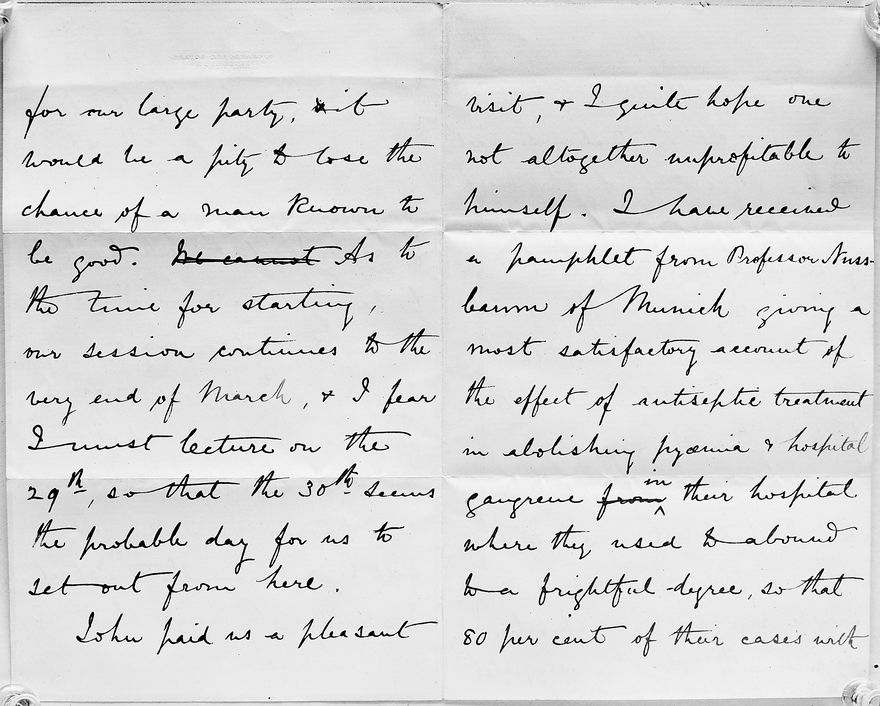 for our large party, & it
would be a pity to lose the
chance of a man known to
be good. We cannot As to
the time for starting,
our session continues to the
very end of March, & I fear
I must lecture on the
29th, so that the 30th seems
the probable day for us to
set out from here.
John paid us a pleasant
visit, & I quite hope one
not altogether unprofitable to
himself. I have received
a pamphlet from Professor Nuss-
baum of Munich giving a
most satisfactory account of
the effect of antiseptic treatment
in abolishing pyæmia & hospital
gangrene from in their hospital
where they used to abound
to a frightful degree, so that
80 per cent of their cases with